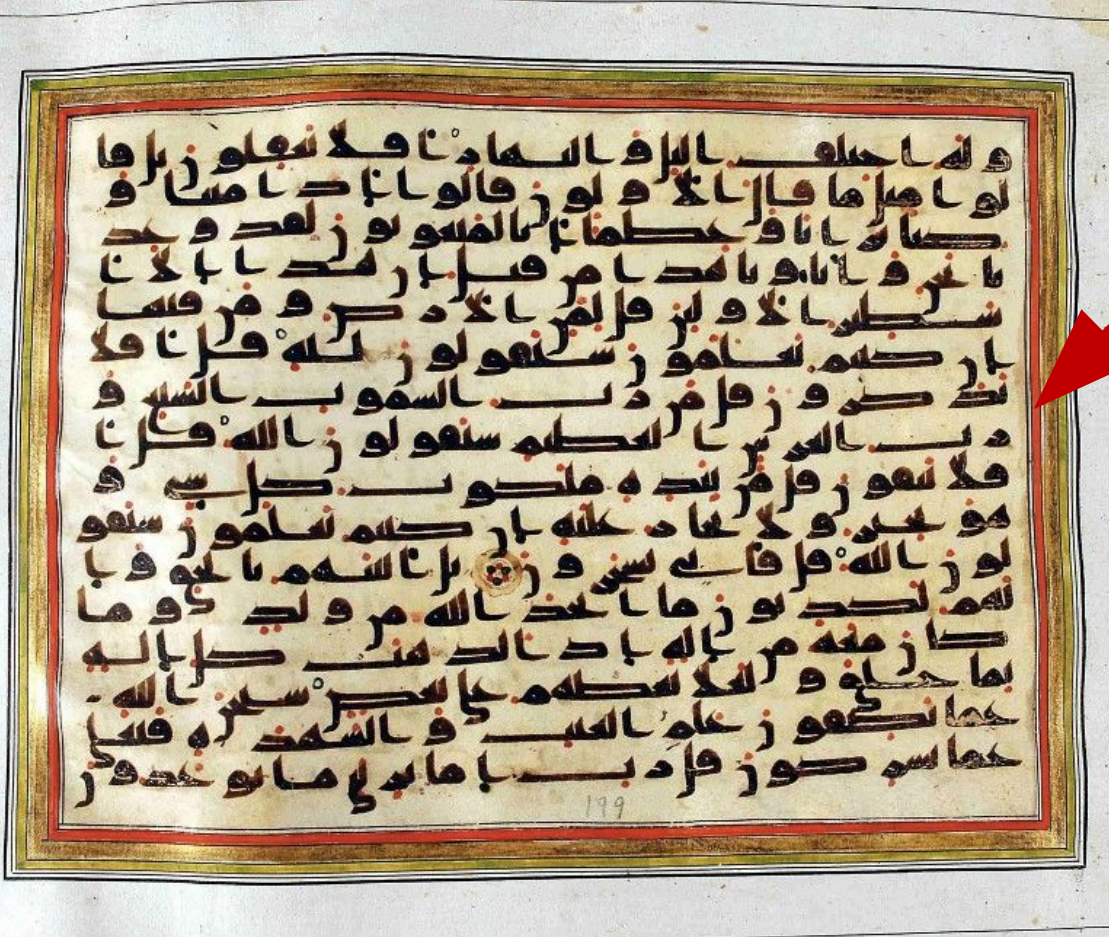 وله اختلف اليل والنهار افلا تعقلون بل قا
لوا مثل ما قال الاولون قالوا اذا متنا و
كنا ترابا وعظما انا لمبعوثون لقد وعد
نا نحن واباونا هذا من قبل ان هذا الا ا
سطير الاولين قل لمن الارض ومن فيها
ان كنتم تعلمون سيقولون لله قل افلا
تذكرون قل من رب السموت السبع و
رب العرش العظيم سيقولون الله قل ا
فلا تتقون قل من بيده ملكوت كل شي و
هو يجير ولا يجار عليه ان كنتم تعلمون سيقو
لون الله قل فانى تسحرون بل اتينهم بالحق وا
نهم لكذبون ما اتخذ الله من ولد وما
كان معه من اله اذا لذهب كل اله
بما خلق ولعلا بعضهم على بعض سبحن الله
عما يصفون علم الغيب والشهدة فتعلى
عما يشركون قل رب اما تريني ما يوعدون
199